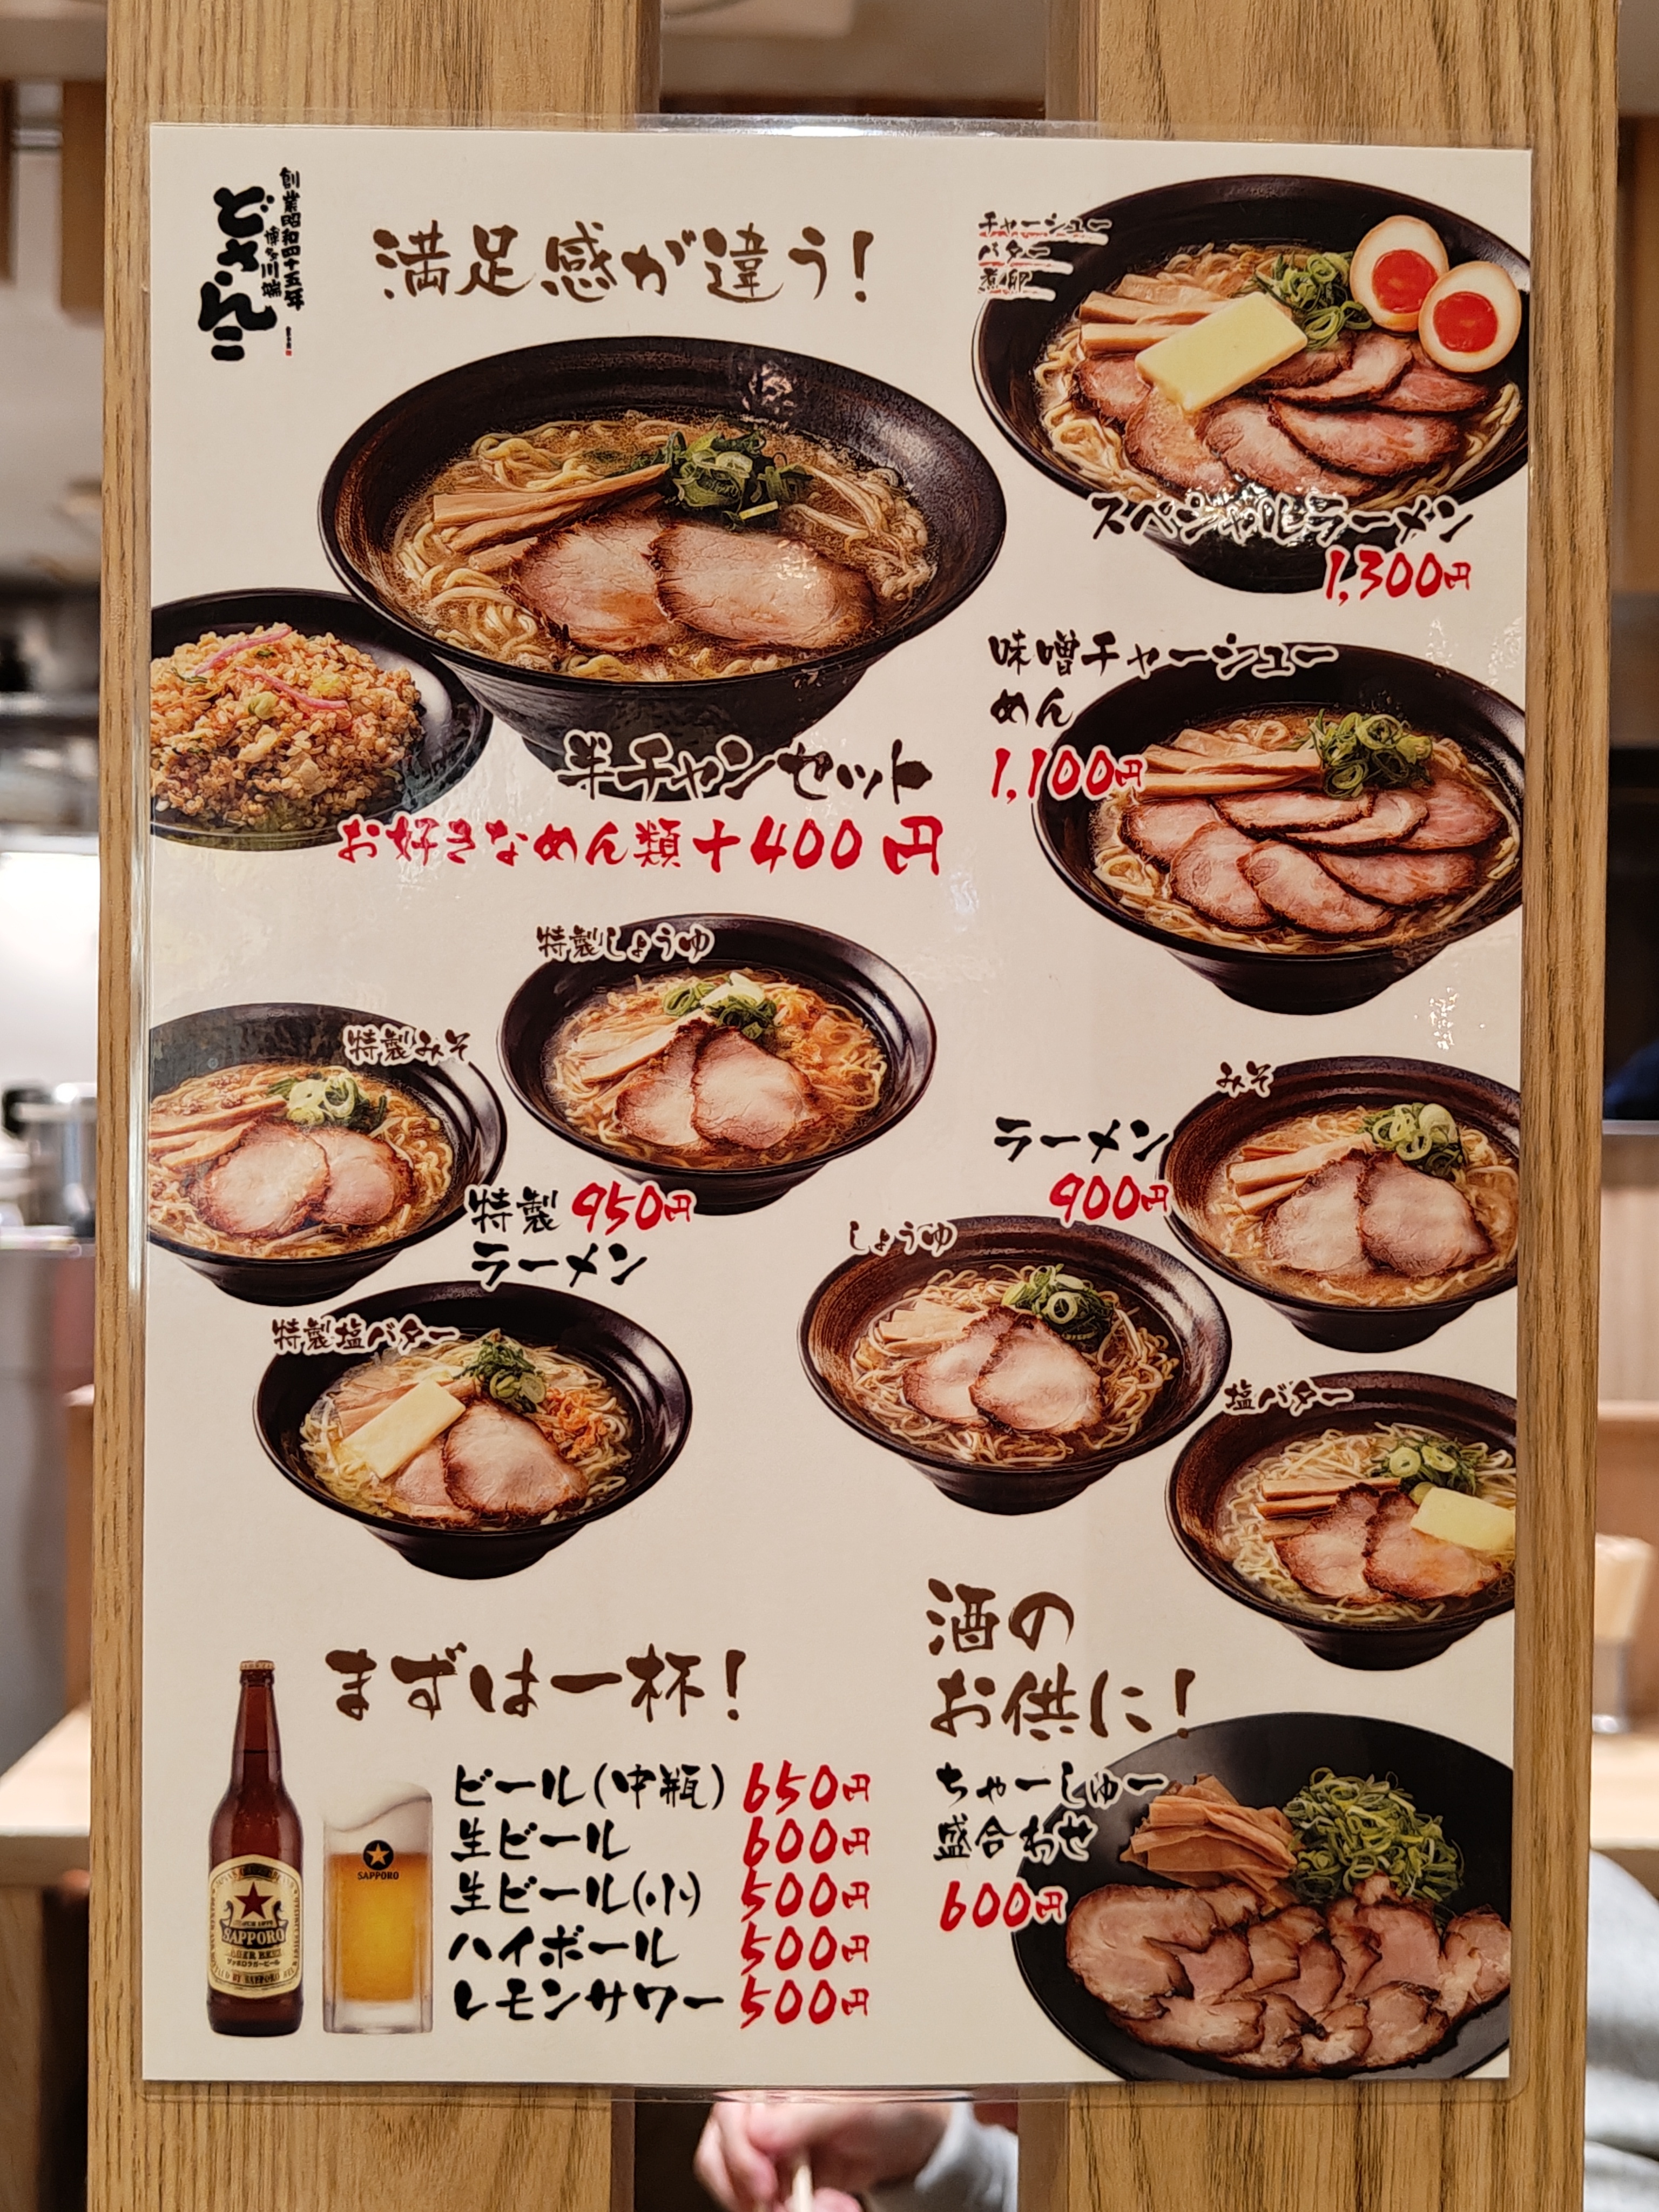 創業昭和四十五年
博多川端
どさんこ
満足感が違う!
チャーシュー
バター
煮卵
スペシャルラーメン
1,300円
半チャンセット
お好きなめん類+400円
味噌チャーシュー
めん
1,100円
特製しょうゆ
特製みそ
特製 950円
ラーメン
特製塩バター
みそ
ラーメン
900円
しょうゆ
塩バター
まずは一杯!
ビール(中瓶) 650円
生ビール 600円
生ビール(小) 500円
ハイボール 500円
レモンサワー 500円
SAPPORO
SAPPORO
LAGER BEER
サッポロラガービール
酒の
お供に!
ちゃーしゅー
盛合わせ
600円